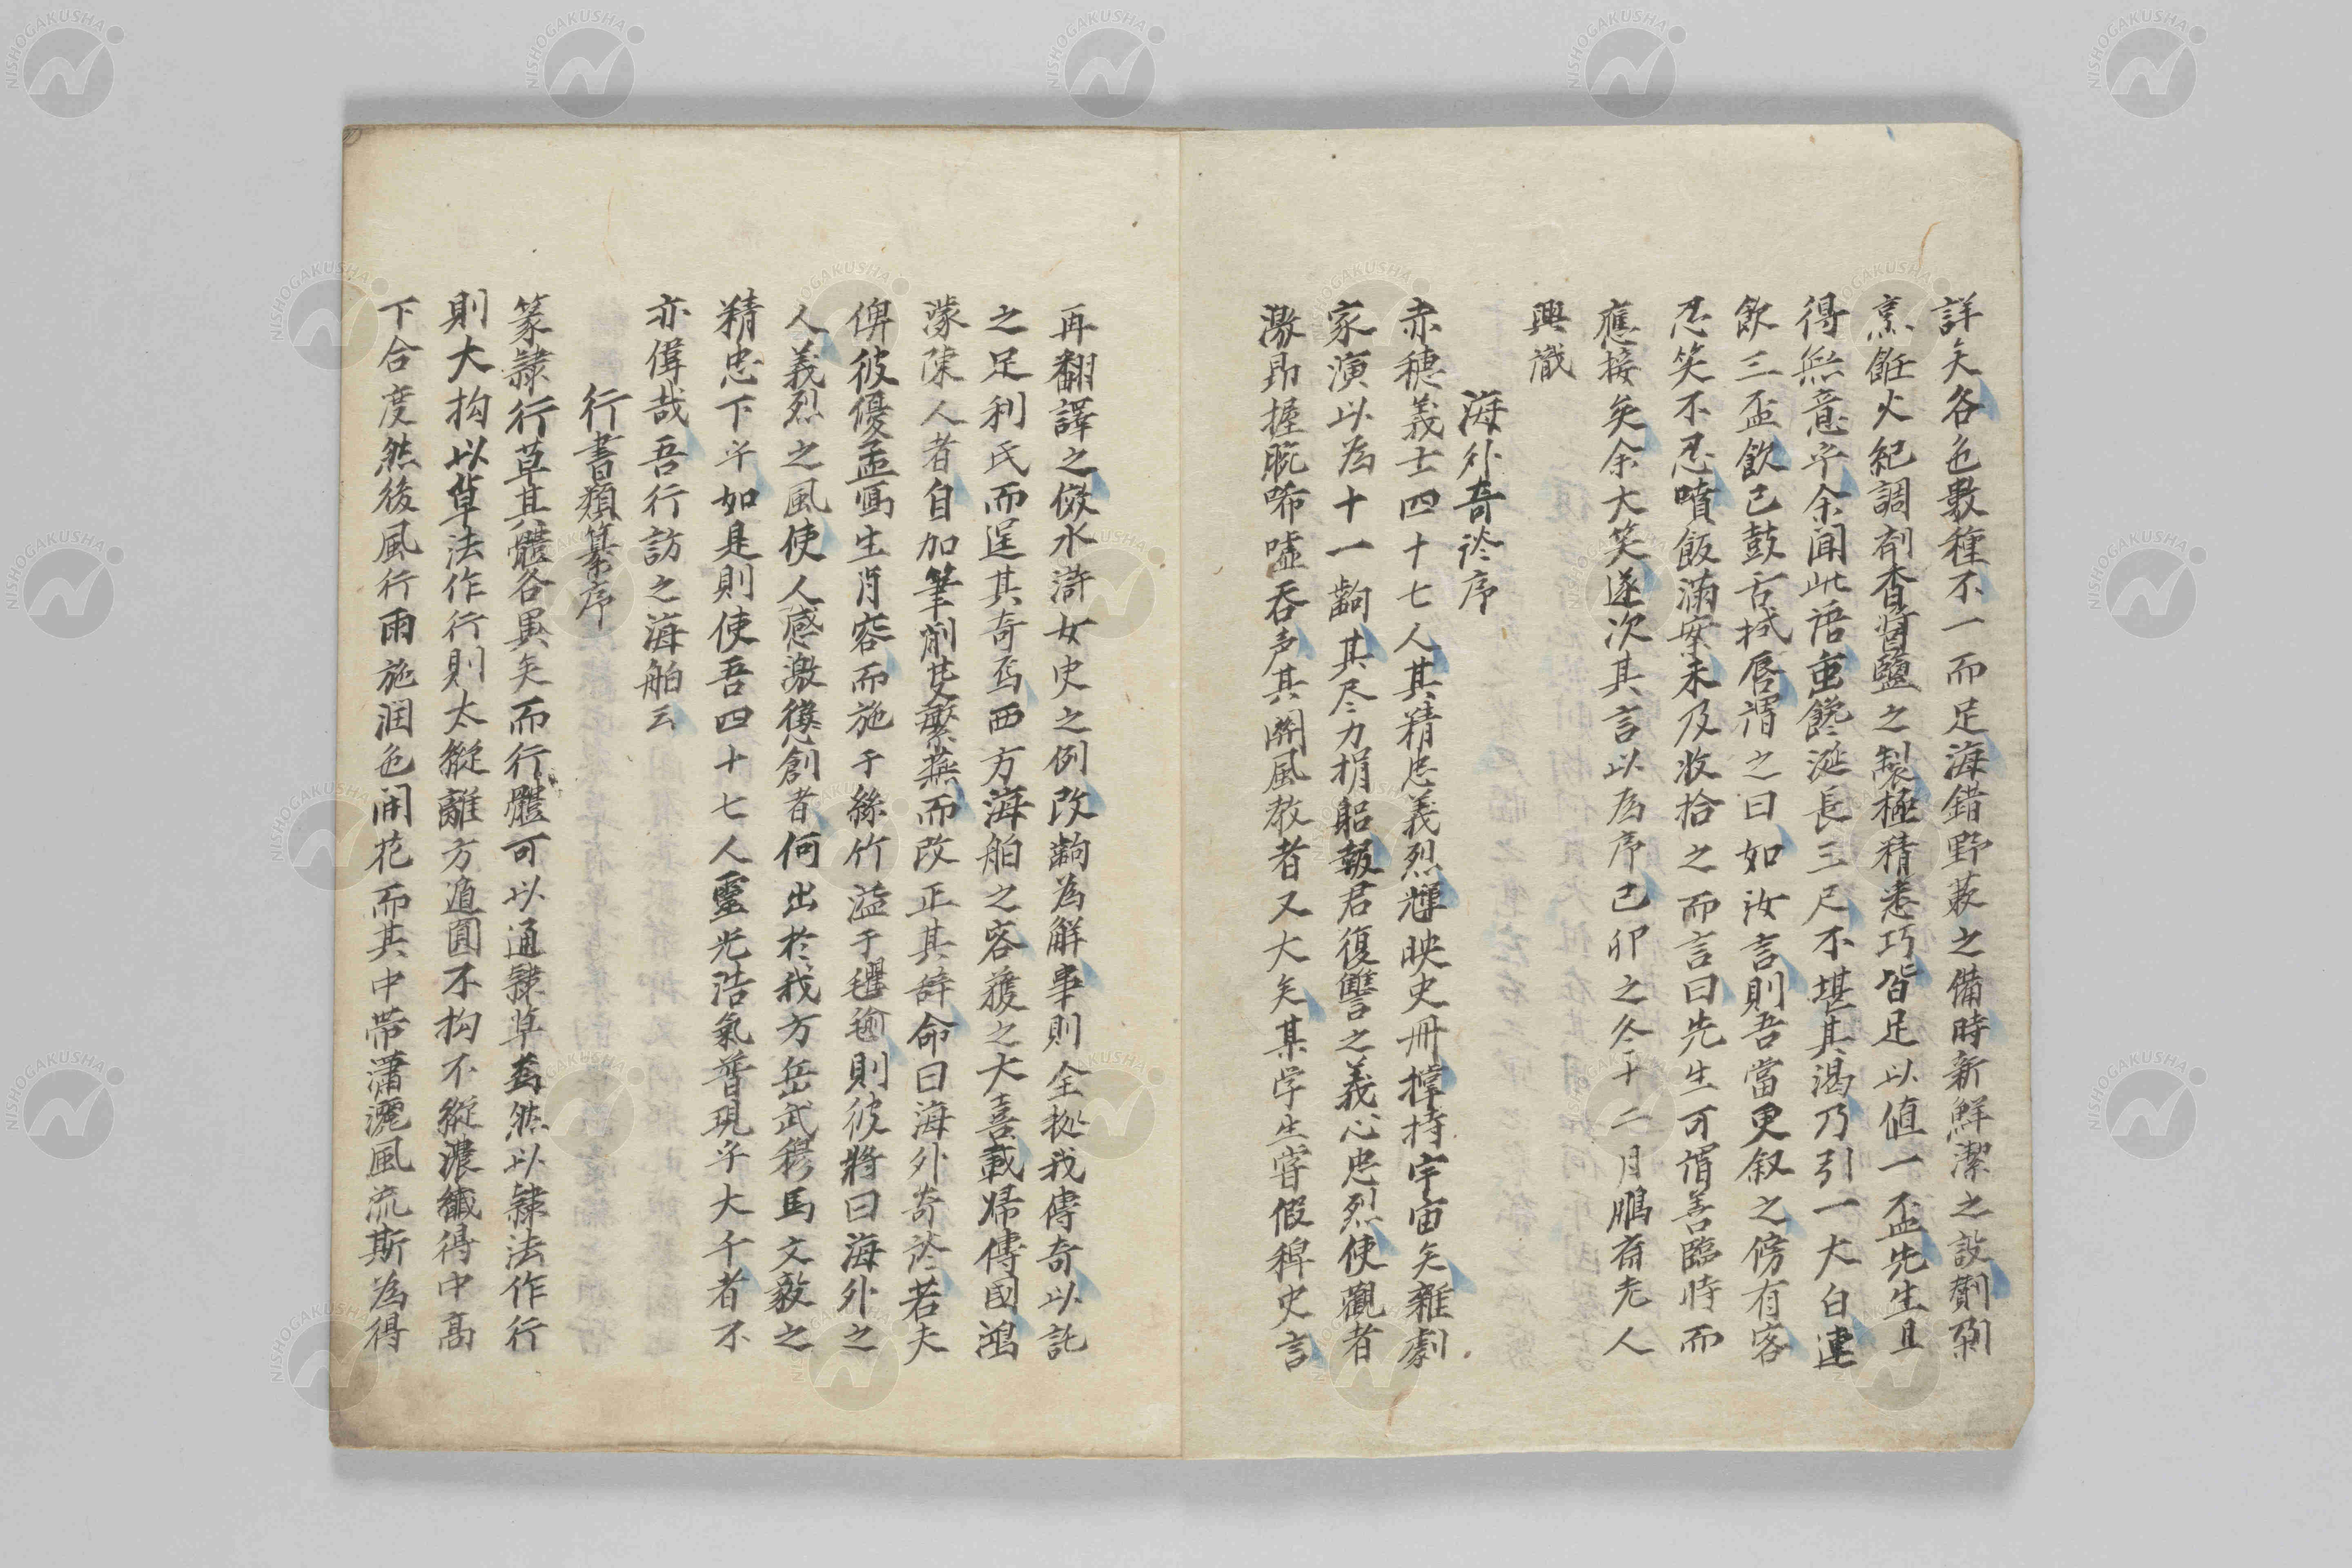 詳矣各色數種不一而足海錯野蔌之備時新鮮潔之設劑
烹飪火紀調劑杳醬鹽之製極精悉巧皆足以值一盃先生且
得無意乎余聞此語重饞涎長三尺不堪其渴乃引一大白連
飲三盃飲已鼓舌拭唇謂之曰如汝言則吾當更叙之傍有客
忍笑不忍噴飯滿案未及收拾之而言曰先生可謂善臨時而
應接矣余大笑遂次其言以為序己卯之冬十二月鵬斎老人
興識
海外奇談序
赤穂義士四十七人其精忠義烈輝映史冊撑持宇宙矣雜劇
家演以為十一齣其尽力捐軀報君復讐之義心忠烈使觀者
激昂握腕唏嘘呑声其関風教者又大矣某学生嘗假稗史言
再翻譯之傚水滸女史之例改齣為解事則全拠我傳奇以託
之足利氏而逞其奇焉西方海舶之客獲之大喜載帰傳國鴻
濛陳人者自加筆削芟繁蕪而改正其辞命曰海外奇談若夫
俾彼優孟写生肖容而施于絲竹溢于氍毹則彼將曰海外之
人義烈之風使人感激懲創者何出於我方岳武穆馬文毅之
精忠下乎如是則使吾四十七人靈光浩氣普現乎大千者不
亦偉哉吾行訪之海舶云
行書類纂序
篆隷行草其體各異矣而行體可以通隷草焉然以隷法作行
則大拘以草法作行則太縦離方遁圓不拘不縦濃纖得中高
下合度然後風行雨施潤色開花而其中帯瀟灑風流斯為得